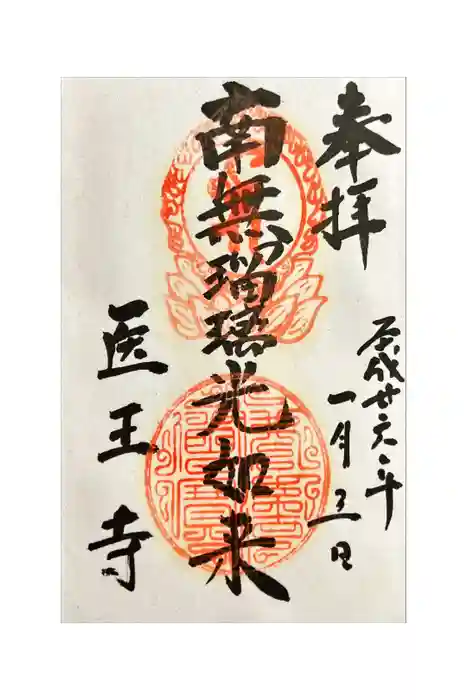 奉拝
平成廿六年
一月三日
南無お瑠璃光如来
医王寺